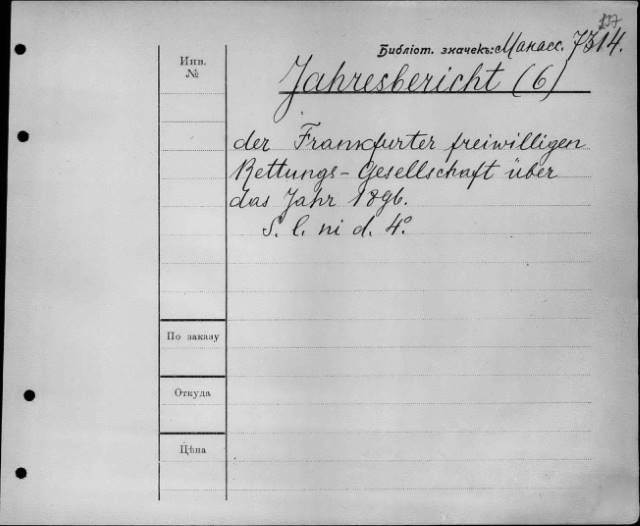 137
Библіот. значекъ: Манасс. 7314.
Инв.
№
Jahresbericht (6)
der Frankfurter freiwilligen
Rettungs-Gesellschaft über
das Jahr 1896.
S. l. ni d. 4º.
По заказу
Откуда
Цѣна